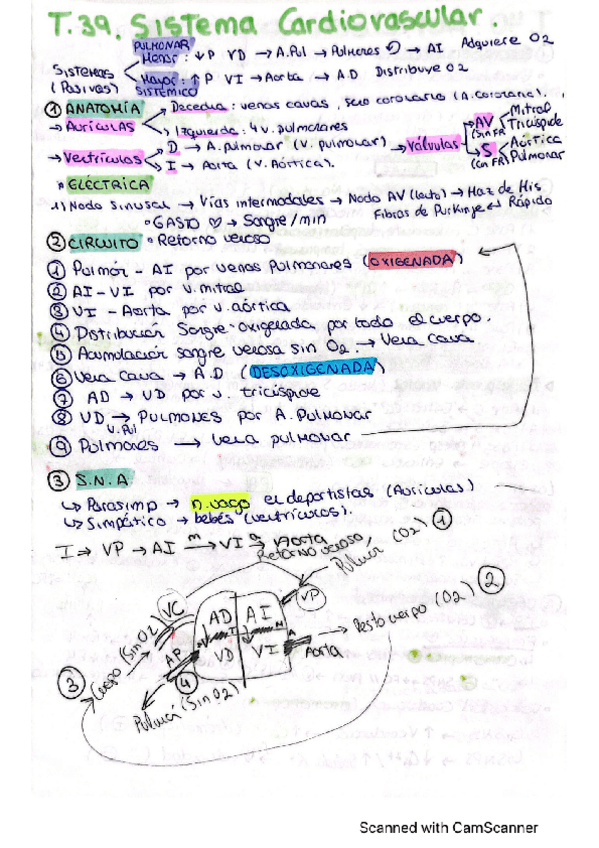 T.39. Sistema Cardiovascular.
PULMONAR
Menor: ↓P VD → A.Pul → Pulmones → AI Adquiere O2
Sistemas
(Pasivos)
Mayor: ↑P VI → Aorta → A.D Distribuye O2
SISTÉMICO
① ANATOMÍA
→ Aurículas
Derecha: venas cavas, seno coronario (A. Coronaria).
Izquierda: 4 v. pulmonares
→ Ventrículos
D. → A. pulmonar (V. pulmonar)
I → Aorta (V. Aórtica).
→ Válvulas
AV (Sin FR) Mitral Tricúspide
S (Con FR) Aórtica Pulmonar
ELÉCTRICA
1) Nodo Sinusal → Vías internodales → Nodo AV (lento) → Haz de His
Fibras de Purkinje Rápido
• GASTO → Sangre/min
② CIRCUITO • Retorno venoso
① Pulmón - AI por venas Pulmonares (OXIGENADA)
② AI - VI por v. mitral
③ VI - Aorta por v. aórtica
④ Distribución Sangre oxigenada por todo el cuerpo.
⑤ Acumulación sangre venosa sin O2. → Vena Cava
⑥ Vena Cava → A.D. (DESOXIGENADA)
⑦ AD → VD por v. tricúspide
⑧ VD → PULMONES por A. Pulmonar
V. Pul
⑨ Pulmones → vena pulmonar
③ S.N.A
↳ Parasimp → n. vago en deportistas (Aurículas)
↳ Simpático → bebés (ventrículos).
I → VP → AI → M VI → A Aorta
Retorno venoso,
Pulmón (O2) ①
VC
VP
AD AI
VD VI
M
A
AP
Aorta
→ Resto cuerpo (O2) ②
③ Cuerpo (Sin O2)
④
Pulmón (Sin O2)
Scanned with CamScanner